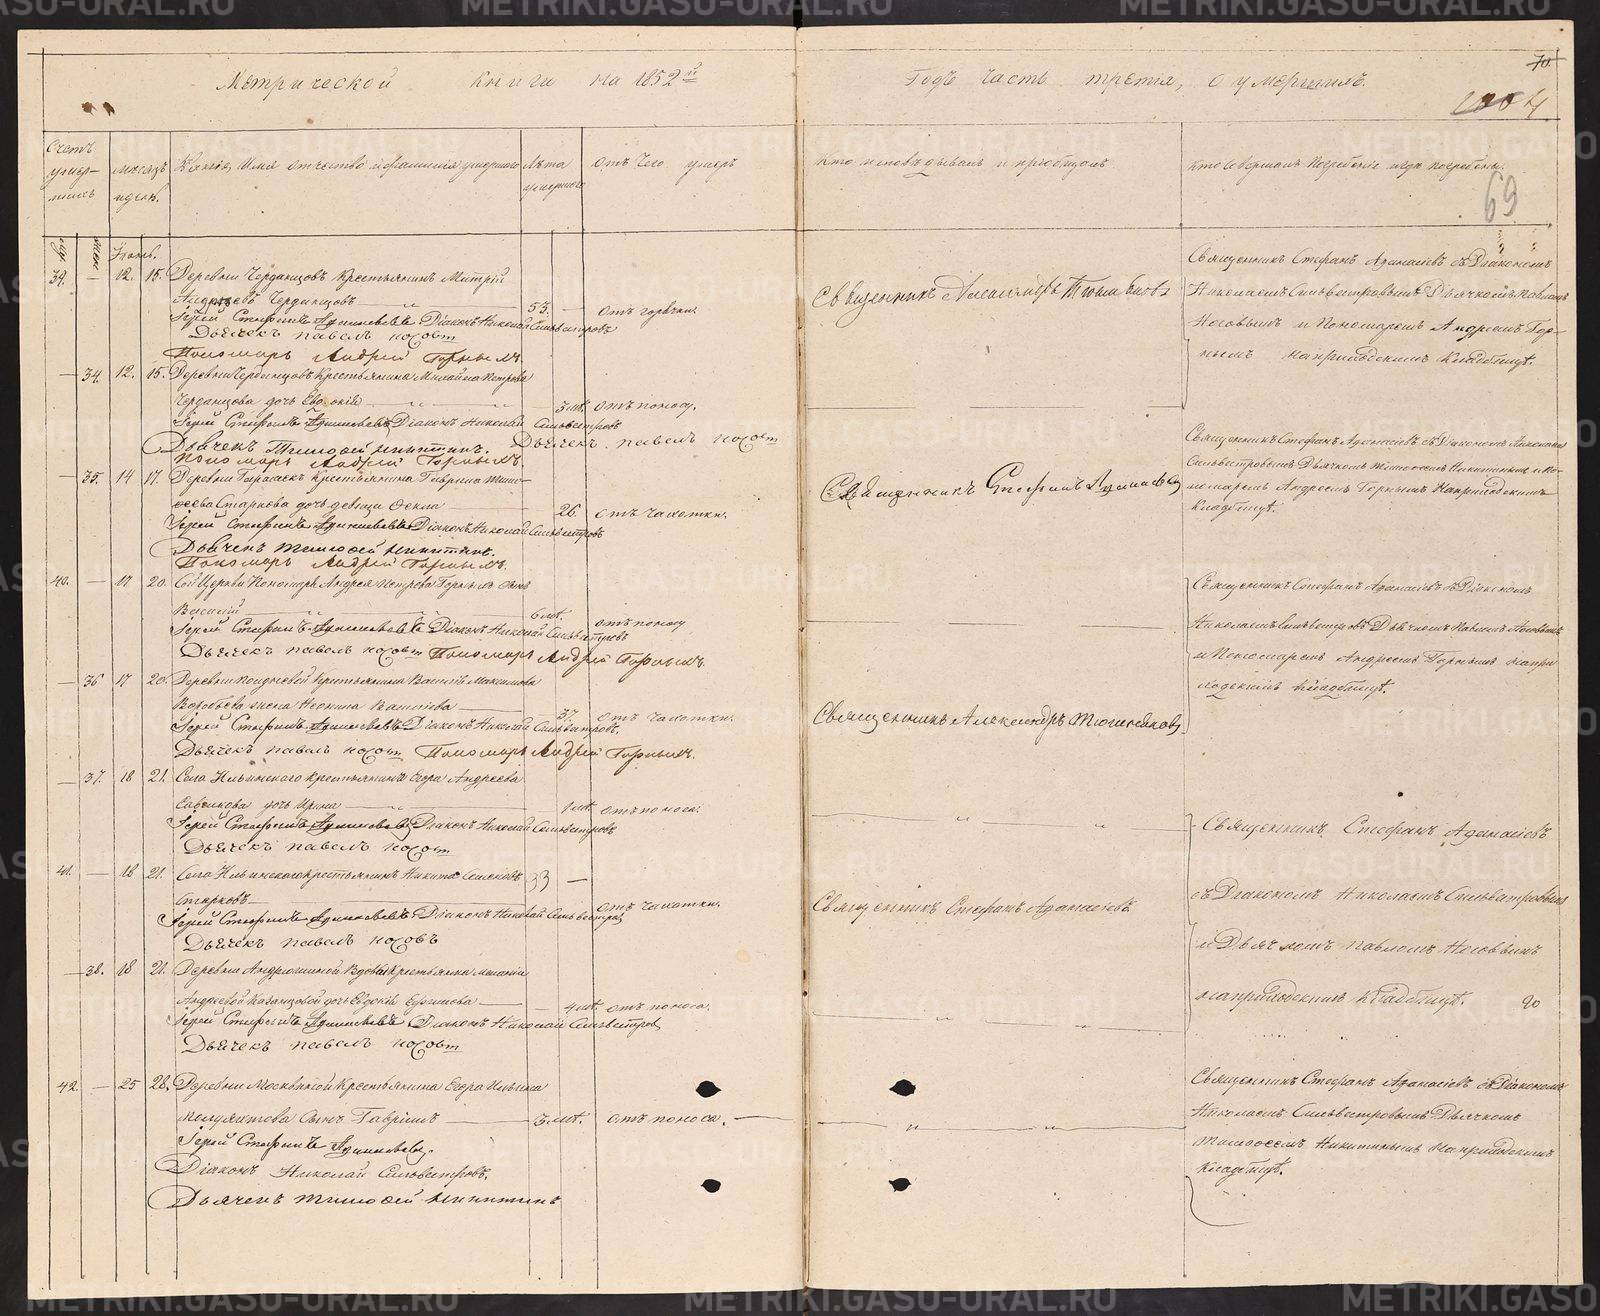 Метрической книги на 1852й
Годъ часть третья, о умершихъ.
70
69
Счетъ умер-шихъ
Месяцъ и день.
Званіе, Имя отчество и фамилія умершаго
Лѣта умершаго
отъ чего умеръ
Кто исповѣдывалъ и пріобщалъ
Кто совершалъ Погребеніе и гдѣ погребены.
39. — 12. 15. Деревни Черданцовъ Крестьянинъ Митрій
Андреевъ Черданцовъ 53. — отъ горячки.
Іерей Стефанъ Афанасьевъ Діаконъ Николай Сильвестровъ
Дьячекъ павелъ носовъ
Пономарь Андрей Горныхъ.
Священникъ Александръ
Священникъ Стефанъ Афанасіевъ съ Діакономъ
Николаемъ Сильвестровымъ Дьячкомъ Павломъ
Носовымъ и Пономаремъ Андреемъ Гор-
нымъ на приходскомъ кладбищѣ.
— 34. 12. 15. Деревни Черданцовъ Крестьянина Михайла Петрова
Черданцова дочь Евдокія 3 лѣт. отъ поносу.
Іерей Стефанъ Афанасьевъ Діаконъ Николай Сильвестровъ
Дьячекъ Тимофей Никитинъ. Дьячекъ павелъ носовъ
Пономарь Андрей Горныхъ.
— 35. 14 17. Деревни Крестьянина Гаврила Тимо-
феева Старкова дочь девица Фекла 26 отъ чахотки.
Іерей Стефанъ Афанасьевъ Діаконъ Николай Сильвестровъ
Дьячекъ Тимофей Никитинъ.
Пономарь Андрей Горныхъ.
Священникъ Стефанъ Афанасьевъ
Священникъ Стефанъ Афанасіевъ съ Діакономъ Николаемъ
Сильвестровымъ Дьячкомъ Тимофеемъ Никитинымъ и По-
номаремъ Андреемъ Горнымъ На приходскомъ
Кладбищѣ.
40. — 17 20. Сей Церкви Пономаря Андрея Петрова Горныхъ сынъ
Василій 6 лѣт. отъ поносу
Іерей Стефанъ Афанасьевъ Діаконъ Николай Сильвестровъ
Дьячекъ павелъ носовъ Пономарь Андрей Горныхъ.
Священникъ Стефанъ Афанасіевъ съ Діакономъ
Николаемъ Сильвестровъ Дьячкомъ Павломъ Носовымъ
и Пономаремъ Андреемъ Горнымъ на при
ходскомъ кладбищѣ.
— 36 17 20. Деревни крестьянина Василья Максимова
Воробьева жена 37. отъ чахотки.
Іерей Стефанъ Афанасьевъ Діаконъ Николай Сильвестровъ.
Дьячекъ павелъ носовъ Пономарь Андрей Горныхъ.
Священникъ Александръ
— 37. 18 21. Села Ильинскаго крестьянина Егора Андреева
дочь Ирина 1 лѣт. отъ поноса.
Іерей Стефанъ Афанасьевъ Діаконъ Николай Сильвестровъ
Дьячекъ павелъ носовъ
Священникъ Стефанъ Афанасіевъ
41. — 18 21. Села Ильинскаго крестьянинъ Никита Семеновъ 33 —
Старковъ отъ чахотки.
Іерей Стефанъ Афанасьевъ Діаконъ Николай Сильвестровъ
Дьячекъ павелъ носовъ
Священникъ Стефанъ Афанасіевъ
съ Діакономъ Николаемъ Сильвестровымъ
и Дьячкомъ Павломъ Носовымъ
— 38. 18 21. Деревни Андрюшиной Вдовы Крестьянки
Андреевой Казанцовой дочь Евдокія Ефимова 4 лѣт. отъ поноса.
Іерей Стефанъ Афанасьевъ Діаконъ Николай Сильвестровъ
Дьячекъ павелъ носовъ
на приходскомъ кладбищѣ. 90
42. — 25 28. Деревни Москвиной Крестьянина Егора Ильина
сынъ Гавріилъ 3 лѣт. отъ поноса.
Іерей Стефанъ Афанасьевъ.
Діаконъ Николай Сильвестровъ.
Дьячекъ Тимофей Никитинъ
Священникъ Стефанъ Афанасіевъ съ Діакономъ
Николаемъ Сильвестровымъ Дьячкомъ
Тимофеемъ Никитинымъ На приходскомъ
Кладбищѣ.
METRIKI.GASO-URAL.RU